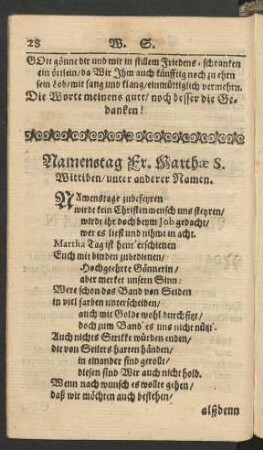 28 W. S.
GOtt gönne dir und mir in stillem Friedens-schrancken
ein örtlein/da Wir Ihm auch künfftig noch zu ehrn
sein Lob/mit sang und klang/einmüttiglich vermehrn.
Die Worte meinens gutt/noch besser die Ge-
dancken!
Namenstag Fr. Marthæ S.
Wittiben/unter anderer Namen.
NAmenstage zubefeyren
wirds kein Christen mensch uns steyren/
wirds ihr doch beym Job gedacht/
wer es liest und nihmt in acht.
Martha Tag ist heint erschienen
Euch mit binden zubedienen/
Hochgeehrte Gönnerin/
aber mercket unsern Sinn:
Were schon das Band von Seiden
in viel farben unterscheiden/
auch mit Golde wohl durchsitzt/
doch zum Band' es uns nicht nützt.
Auch nichts Stricke würden enden/
die von Seilers harten händen/
in einander sind gerollt/
diesen sind Wir auch nicht hold.
Wenn nach wunsch es wolte gehen/
daß wir möchten auch bestehen/
alßdenn